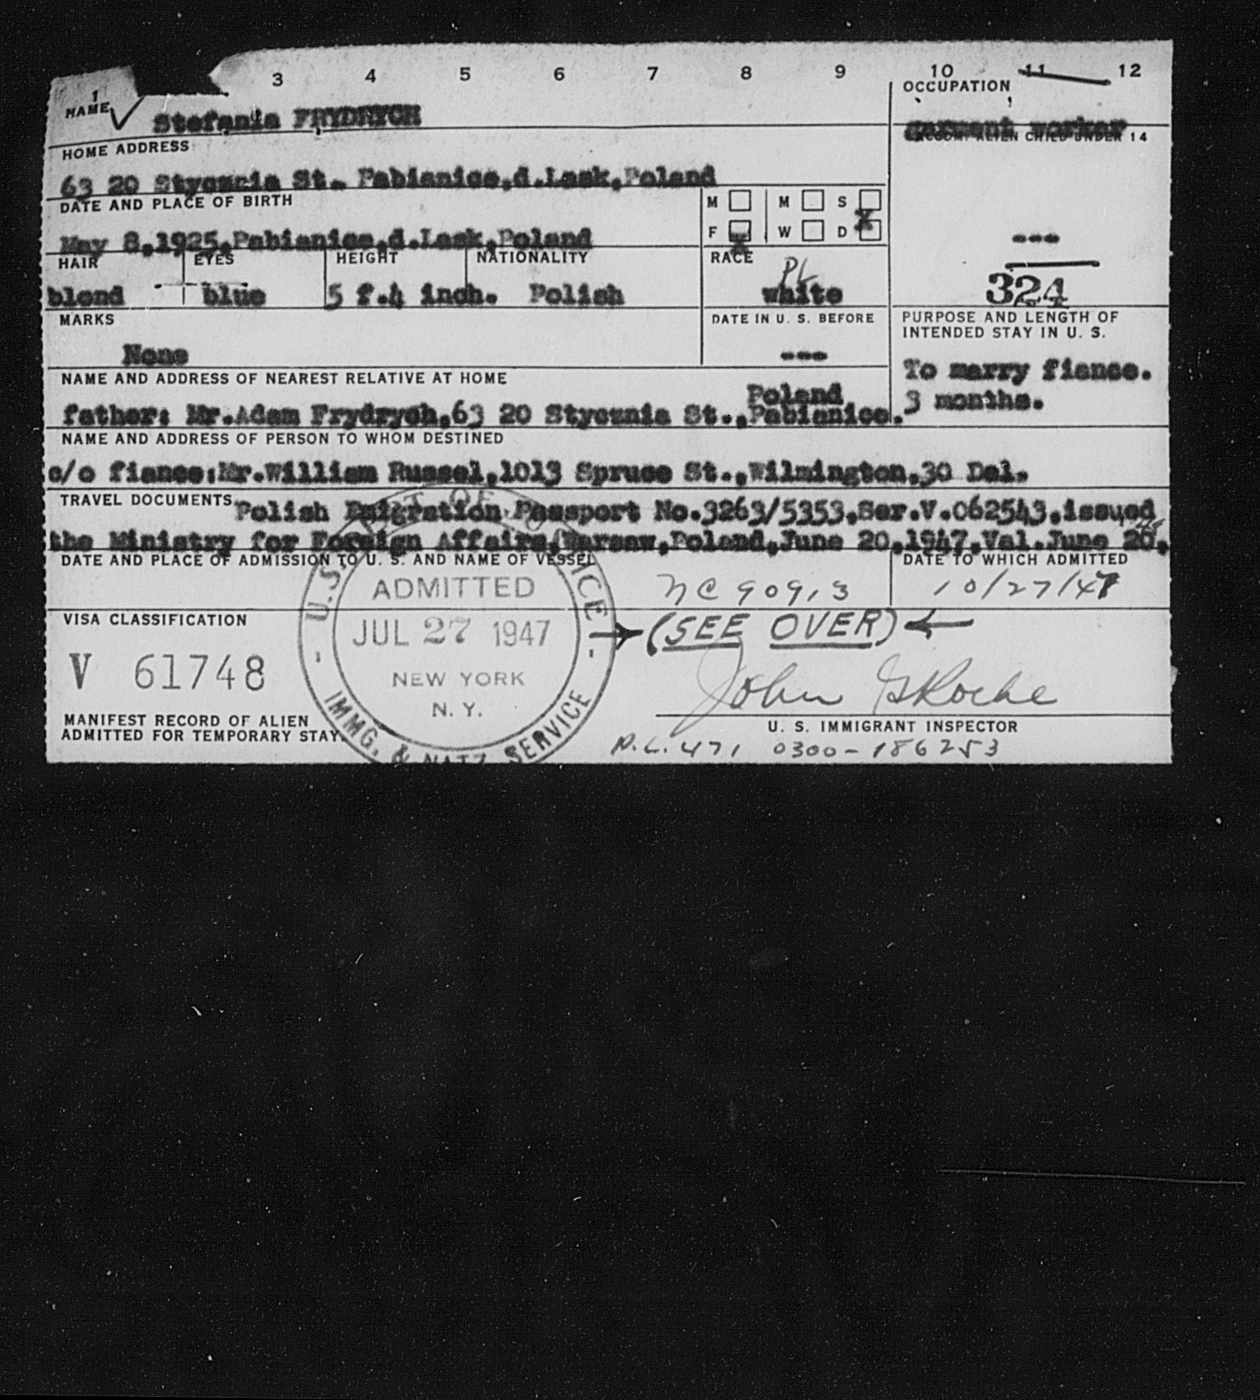 3 4 5 6 7 8 9 10 11 12
1
NAME
Stefania FRYDRYCH
OCCUPATION
garment worker
ACCOM. ALIEN CHILD UNDER 14
---
324
HOME ADDRESS
63 20 Stycznia St. Pabianice,d.Lask,Poland
DATE AND PLACE OF BIRTH
May 8,1925,Pabianice,d.Lask,Poland
M M S
F W D
X X
HAIR EYES HEIGHT NATIONALITY RACE
PL
blond blue 5 f.4 inch. Polish white
MARKS
None
DATE IN U. S. BEFORE
---
PURPOSE AND LENGTH OF
INTENDED STAY IN U. S.
To marry fiance.
3 months.
NAME AND ADDRESS OF NEAREST RELATIVE AT HOME
Poland
father: Mr.Adam Frydrych,63 20 Stycznia St.,Pabianice.
NAME AND ADDRESS OF PERSON TO WHOM DESTINED
c/o fiance:Mr.William Russel,1013 Spruce St.,Wilmington,30 Del.
TRAVEL DOCUMENTS
Polish Emigration Passport No.3263/5353,Ser.V.062543,issued
the Ministry for Foreign Affairs,Warsaw,Poland,June 20,1947,Val.June 20,
DATE AND PLACE OF ADMISSION TO U. S. AND NAME OF VESSEL
NC 90913
DATE TO WHICH ADMITTED
10/27/47
U.S.
ADMITTED
JUL 27 1947
NEW YORK
N. Y.
IMMG. & NATZ. SERVICE
(SEE OVER)
VISA CLASSIFICATION
V 61748
John G Roche
U. S. IMMIGRANT INSPECTOR
MANIFEST RECORD OF ALIEN
ADMITTED FOR TEMPORARY STAY.
P.L. 471 0300-186253